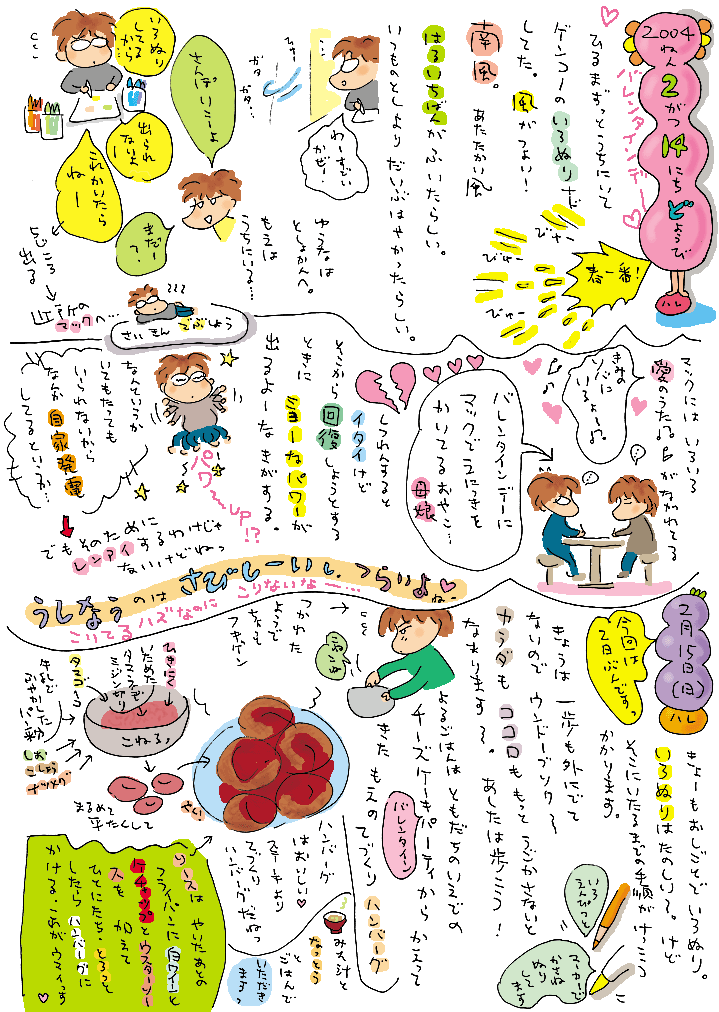 2004
ねん
2
がつ
14
にち
どようび
ハレ
バレンタインデー
ひるまずっとうちにいて
ゲンコーのいろぬりナド
してた。風がつよい!
南風。あたたかい風
はるいちばんがふいたらしい。
いつものとしよりだいぶはやかったらしい。
春一番!
びゅー
びゅー
びゅー
わーすごい
かぜー
ガタ
ガタ…
さんぽいこーよ
いろぬり
してる
から…
出られ
ないよ
これかいたら
ねー
まだー
?
ゆうなは
としょかんへ。
もえは
うちにいる…
5じころ
出る
近所の
マックへ…
さいきん でぶしょう
マックには いろいろ
愛のうたがながれてる
きみの
ソバに
いるよー
バレンタインデーに
マックでえにっきを
かいてるおやこ…
母娘
しつれんすると
イタイけど
そこから回復しようとする
ときに
ミョーなパワーが
出るよーなきがする。
パワーup!?
なんていうか
いてもたっても
いられないから
なんか 自家発電
してるというか…
でもそのために
レンアイするわけじゃ
ないけどねっ
うしなうのは さびしーいし、つらいよねー
こりてるハズなのに こりないなー…
2月15日(日)
ハレ
今回は
2日ぶんですっ
きょーもおしごとで いろぬり。
いろぬりはたのしい〜。けど
そこにいたるまでの手順がけっこう
かかります。
いろ
えんぴつと
マーカーで
かさね
ぬり
して
ます
きょうは 一歩も外にでて
ないので ウンドーブソク〜
カラダも ココロも もっと うごかさないと
なまります〜。 あしたは歩こう!
よるごはんは ともだちのいえでの
チーズケーキパーティから かえって
きた もえの てづくり ハンバーグ
バレンタイン
つかれた
ようで
ちょっと
フキゲン
ひきにく
いためた
タマネギ
ミジン切り
タマゴ
牛乳で
ふやかした
パン粉
しお
こしょう
ナツメグ
こねる
まるめて
平たくして
やく
ハンバーグ
はおいしい
ステーキより
てづくり
ハンバーグだねっ
みそ汁と
なっとう
と
ごはんで
いただき
まるっ
ソースは やいたあとの
フライパンに 白ワインと
ケチャップとウスターソー
スも 加えて
ひとにたち。とろっと
したら ハンバーグに
かける。これがウマイです